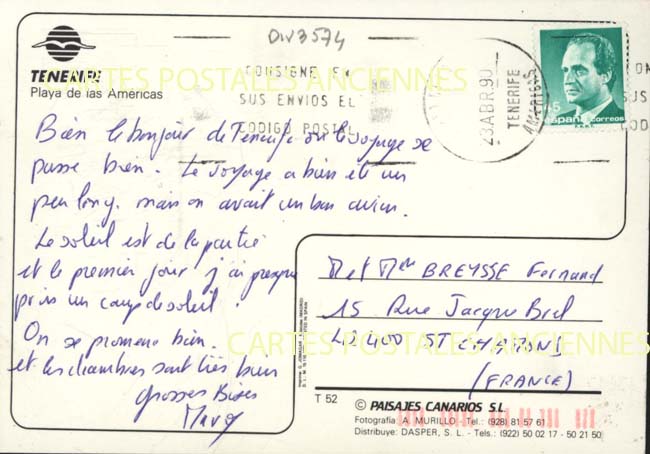 DIV3574
TENERIFE
Playa de las Americas
CONSIGNE EN
SUS ENVIOS EL
CODIGO POSTAL
23 ABR 90
TENERIFE
AMERICAS
45
españa correos
CARTES POSTALES ANCIENNES
Bien le bonjour de Tenerife où le voyage se
passe bien. Le voyage a bien été un
peu long, mais on avait un bon avion.
Le soleil est de la partie
et le premier jour j'ai presque
pris un coup de soleil.
On se promène bien.
et les chambres sont très bien
Grosses Bises
M et Mme BREYSSE Fernand
15 Rue Jacques Brel
42400 ST CHAMOND
(FRANCE)
CARTES POSTALES ANCIENNES
T 52
© PAISAJES CANARIOS S.L.
Fotografía: A. MURILLO - Tel.: (928) 81 57 61
Distribuye: DASPER, S. L. - Tels.: (922) 50 02 17 - 50 21 50